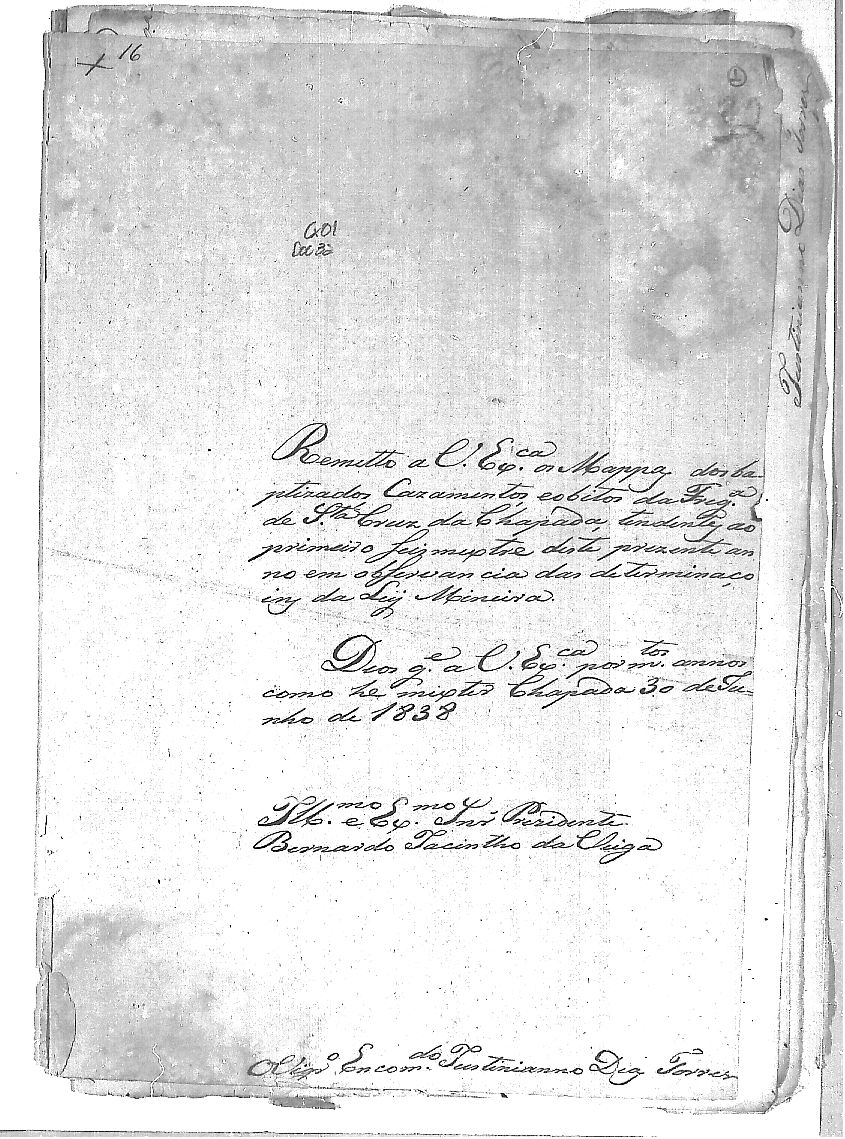 16
1
Cx01
Doc 32
Justinianno Dias Torres
Remetto a V. Ex.ca os Mappas dos ba-
ptizados, Cazamentos, e obitos da Freg.a
de S.ta Cruz da Chapada, tendentes ao
primeiro seizmextre deste prezente an
no em observancia das determinaço
ins da Ley Mineira.
Deos g.e a V. Ex.ca por m.tos annos
como he mixter Chapada 30 de Ju=
nho de 1838
Ill.mo e Ex.mo Snr Prezidente
Bernardo Jacintho da Veiga
O Vigr.o Encom.do Justinianno Dias Torres